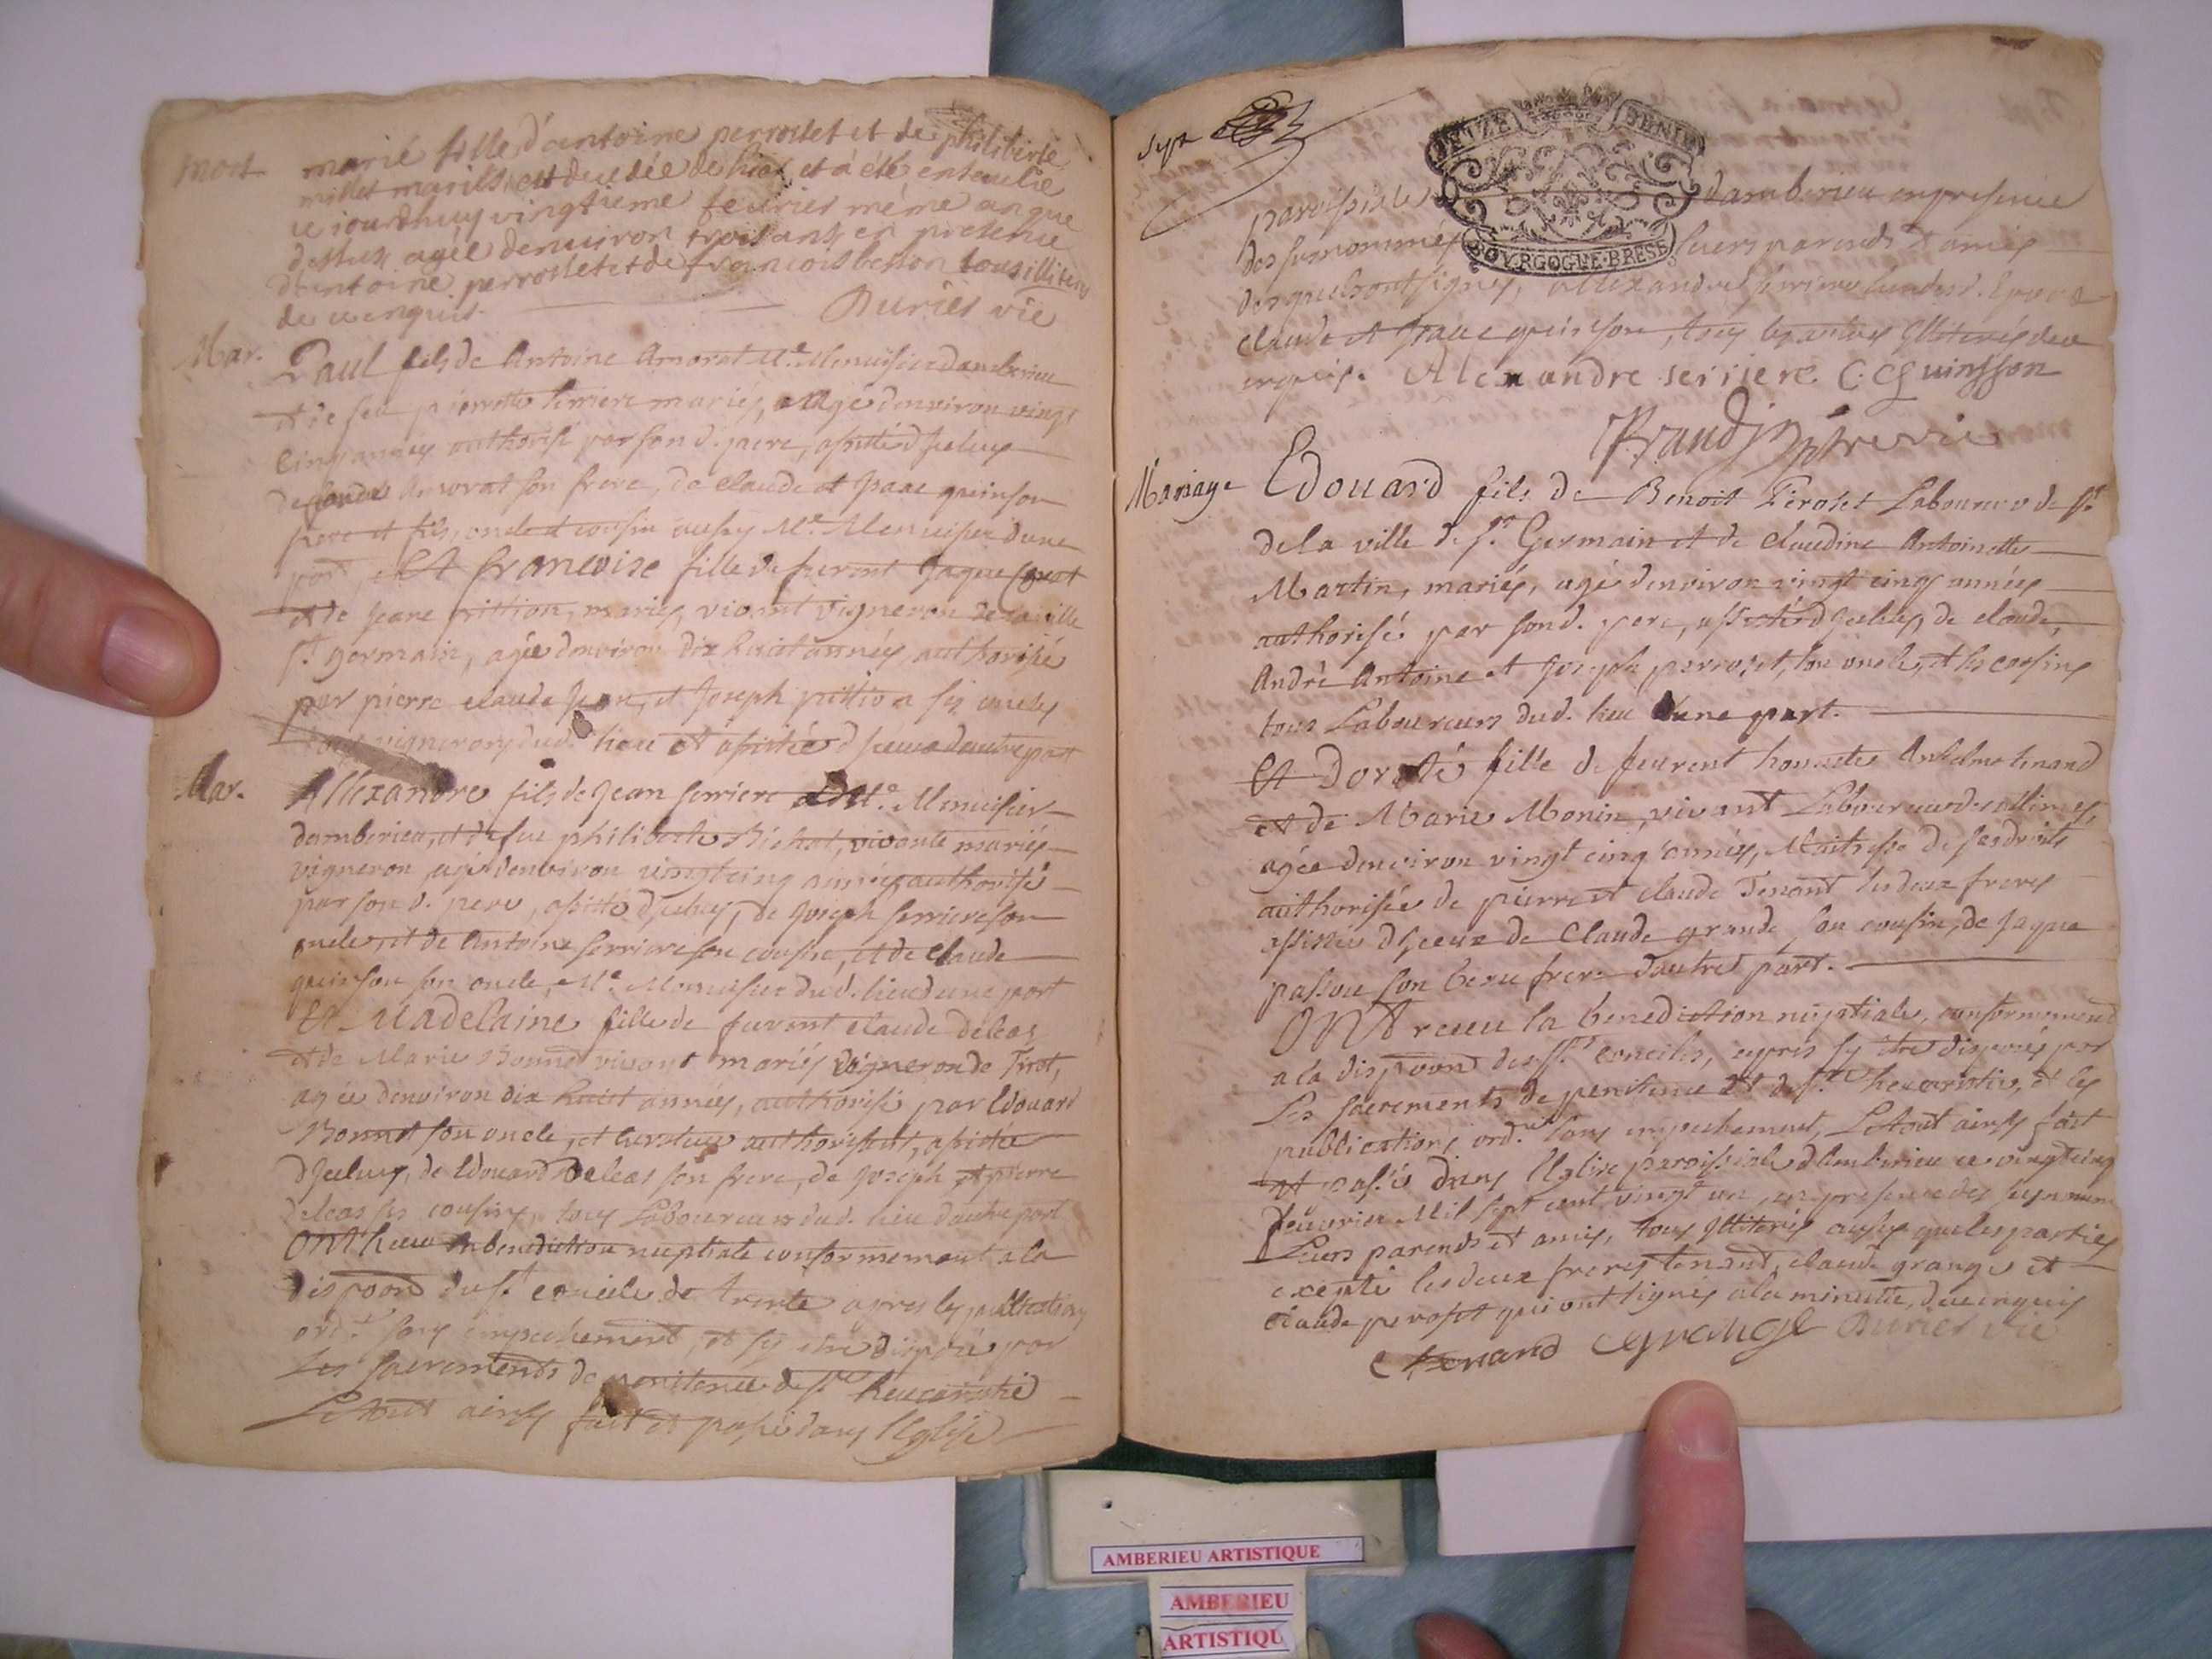 mort
marie fille d'antoine perrosset et de philiberte
millet mariés est decedée de hier et a été ensevelie
ce iourdhuy vingtieme feurier méme an que
dessus agée denuiron trois ans en presence
dantoine perrosset et de francois besson tous illiteres
de ce enquis. Buriés vie
Mar.
Paul fils de Antoine Amorat Me. Menuisier damberieu
et de feu pierrette serriere mariés, aagé denviron vingt
cinq années authorisé par son d. pere, assisté d'jceluy
de Amorat son frere, de claude et jsaac quinson
pere et fils, oncle et cousin aussy Me. Menuisier dune
part Et francoise fille de furent Jaque
et de Jeane pittion, mariés, vivant vigneron de la ville
st germain, agée denviron dix huict années, authorisée
par pierre claude Jean, et Joseph pittion ses oncles
tous vignerons dud. lieu et assistée d'jceux dautre part
Mar.
Allexandre fils de Jean serriere Me. Menuisier
damberieu, et de feue philiberte Bichat, vivante mariés
vigneron, agé denviron vingtcinq années authorisé
par son d. pere, assisté d'jceluy, de Joseph serriere son
oncle, et de Antoine serriere son cousin, et de claude
quinson son oncle, Me. Menuisier dud. lieu dune part
Et Madelaine fille de furent claude deleas
et de Marie Bonnet vivant mariés vigneron de Tiret,
agée denviron dix huict années, authorisée par Edouard
Bonnet son oncle, et curateur authorisant, assistée
d'jceluy, de Edouard deleas son frere, de Joseph et pierre
deleas ses cousins, tous Laboureurs dud. lieu dautre part
ONT receu la benediction nuptiale conformement a la
dispoon du st. concile de trente apres les publications
ord.s sans empechement, et sy etre disposé par
Les sacrements de penitence de ste heucaristie
Le tout ainsy fait et passé dans l'Eglise
sept
SEIZE DENIE
BOVRGOGNE·BRESSE
paroissiale damberieu en presence
des surnommés leurs parents et amis
desquels ont signés, Allexandre serriere Epoux
claude et jsaac quinson, tous les autres jlliterés de ce
enquis. Alexandre serriere C Quinsson
Brandy ptre vic
Mariage
Edouard fils de Benoit Peroset Laboureur de st
de la ville de st. Germain et de claudine Antoinette
Martin, mariés, agé denviron vingt cinq années
authorisé par son d. pere, assisté d'jceluy, de claude,
Andrè Antoine et Joseph perroset, son oncle, et ses cousins
tous Laboureurs dud. lieu dune part.
Et Doroté fille de furent honneste Anselme tenand
et de Marie Monin, vivant Laboureur des allimes,
agée denviron vingt cinq années, Maitresse de ses droits
authorisée de pierre et claude Tenant ses deux freres
assistée d'jceux de claude grande son cousin, de Jaque
passou son beau frere dautre part.
ONT receu la benediction nuptiale, conformement
a la dispoon des sts conciles, aprés sy etre disposés par
Les sacrements de penitence et de ste heucaristie, et les
publications ord.res sans empechement, Le tout ainsy fait
et passé dans l'Eglise paroissiale d'Amberieu ce vingtcinq
feuvrier Mil sept cent vingt un, en presence des surnommés
Leurs parents et amis, tous jlliterés aussy que les parties
excepté les deux freres tenand, claude grange et
claude peroset qui ont signés a la minutte, de ce enquis
C tenand C grange Buries vie
AMBERIEU ARTISTIQUE
AMBERIEU
ARTISTIQU